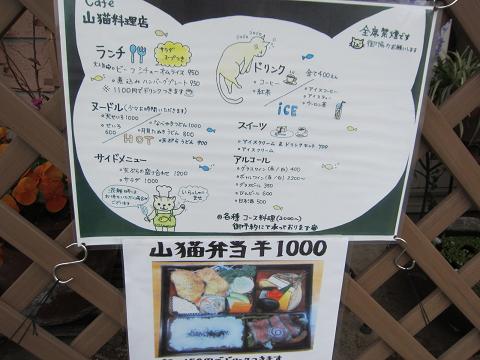 Cafe
山猫料理店
全席禁煙です
御協力お願いします
ランチ
サラダ
スープつき
ビーフシチューオムライス 950
煮込みハンバーグプレート 950
※1100円でドリンクつきます
ドリンク
全て400えん
コーヒー
紅茶
アイスコーヒー
アイスティー
ウーロン茶
ICE
ヌードル
天せいろ 1000
せいろ 600
なべやきうどん 1000
月見たぬきうどん 800
天ぷらうどん 900
HOT
スイーツ
アイスクリーム&ドリンクセット 700
アイスクリーム
サイドメニュー
天ぷらの盛り合わせ 1200
サラダ 1000
アルコール
グラスワイン(赤/白) 400
ボトルワイン(赤/白) 2200〜
グラスビール 350
びんビール 500
日本酒 500
いらっしゃいませ
各種コース料理(2000〜)
御予約にて承っております
山猫弁当 ¥1000